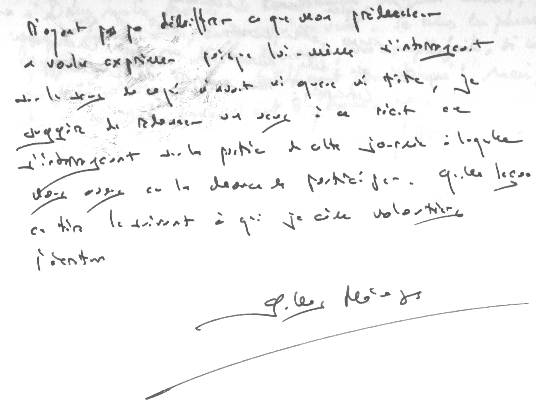 N'ayant pas pu déchiffrer ce que mon prédécesseur
a voulu exprimer puisque lui-même s'interrogeant
sur le sens de ce n'avait ni queue ni tête, je
suggère de redonner un sens à ce récit en
s'interrogeant sur la portée de cette journée à laquelle
nous avons eu la chance de participer. Quelles leçons
en tire le suivant à qui je cède volontiers
l'écriture
Gilles